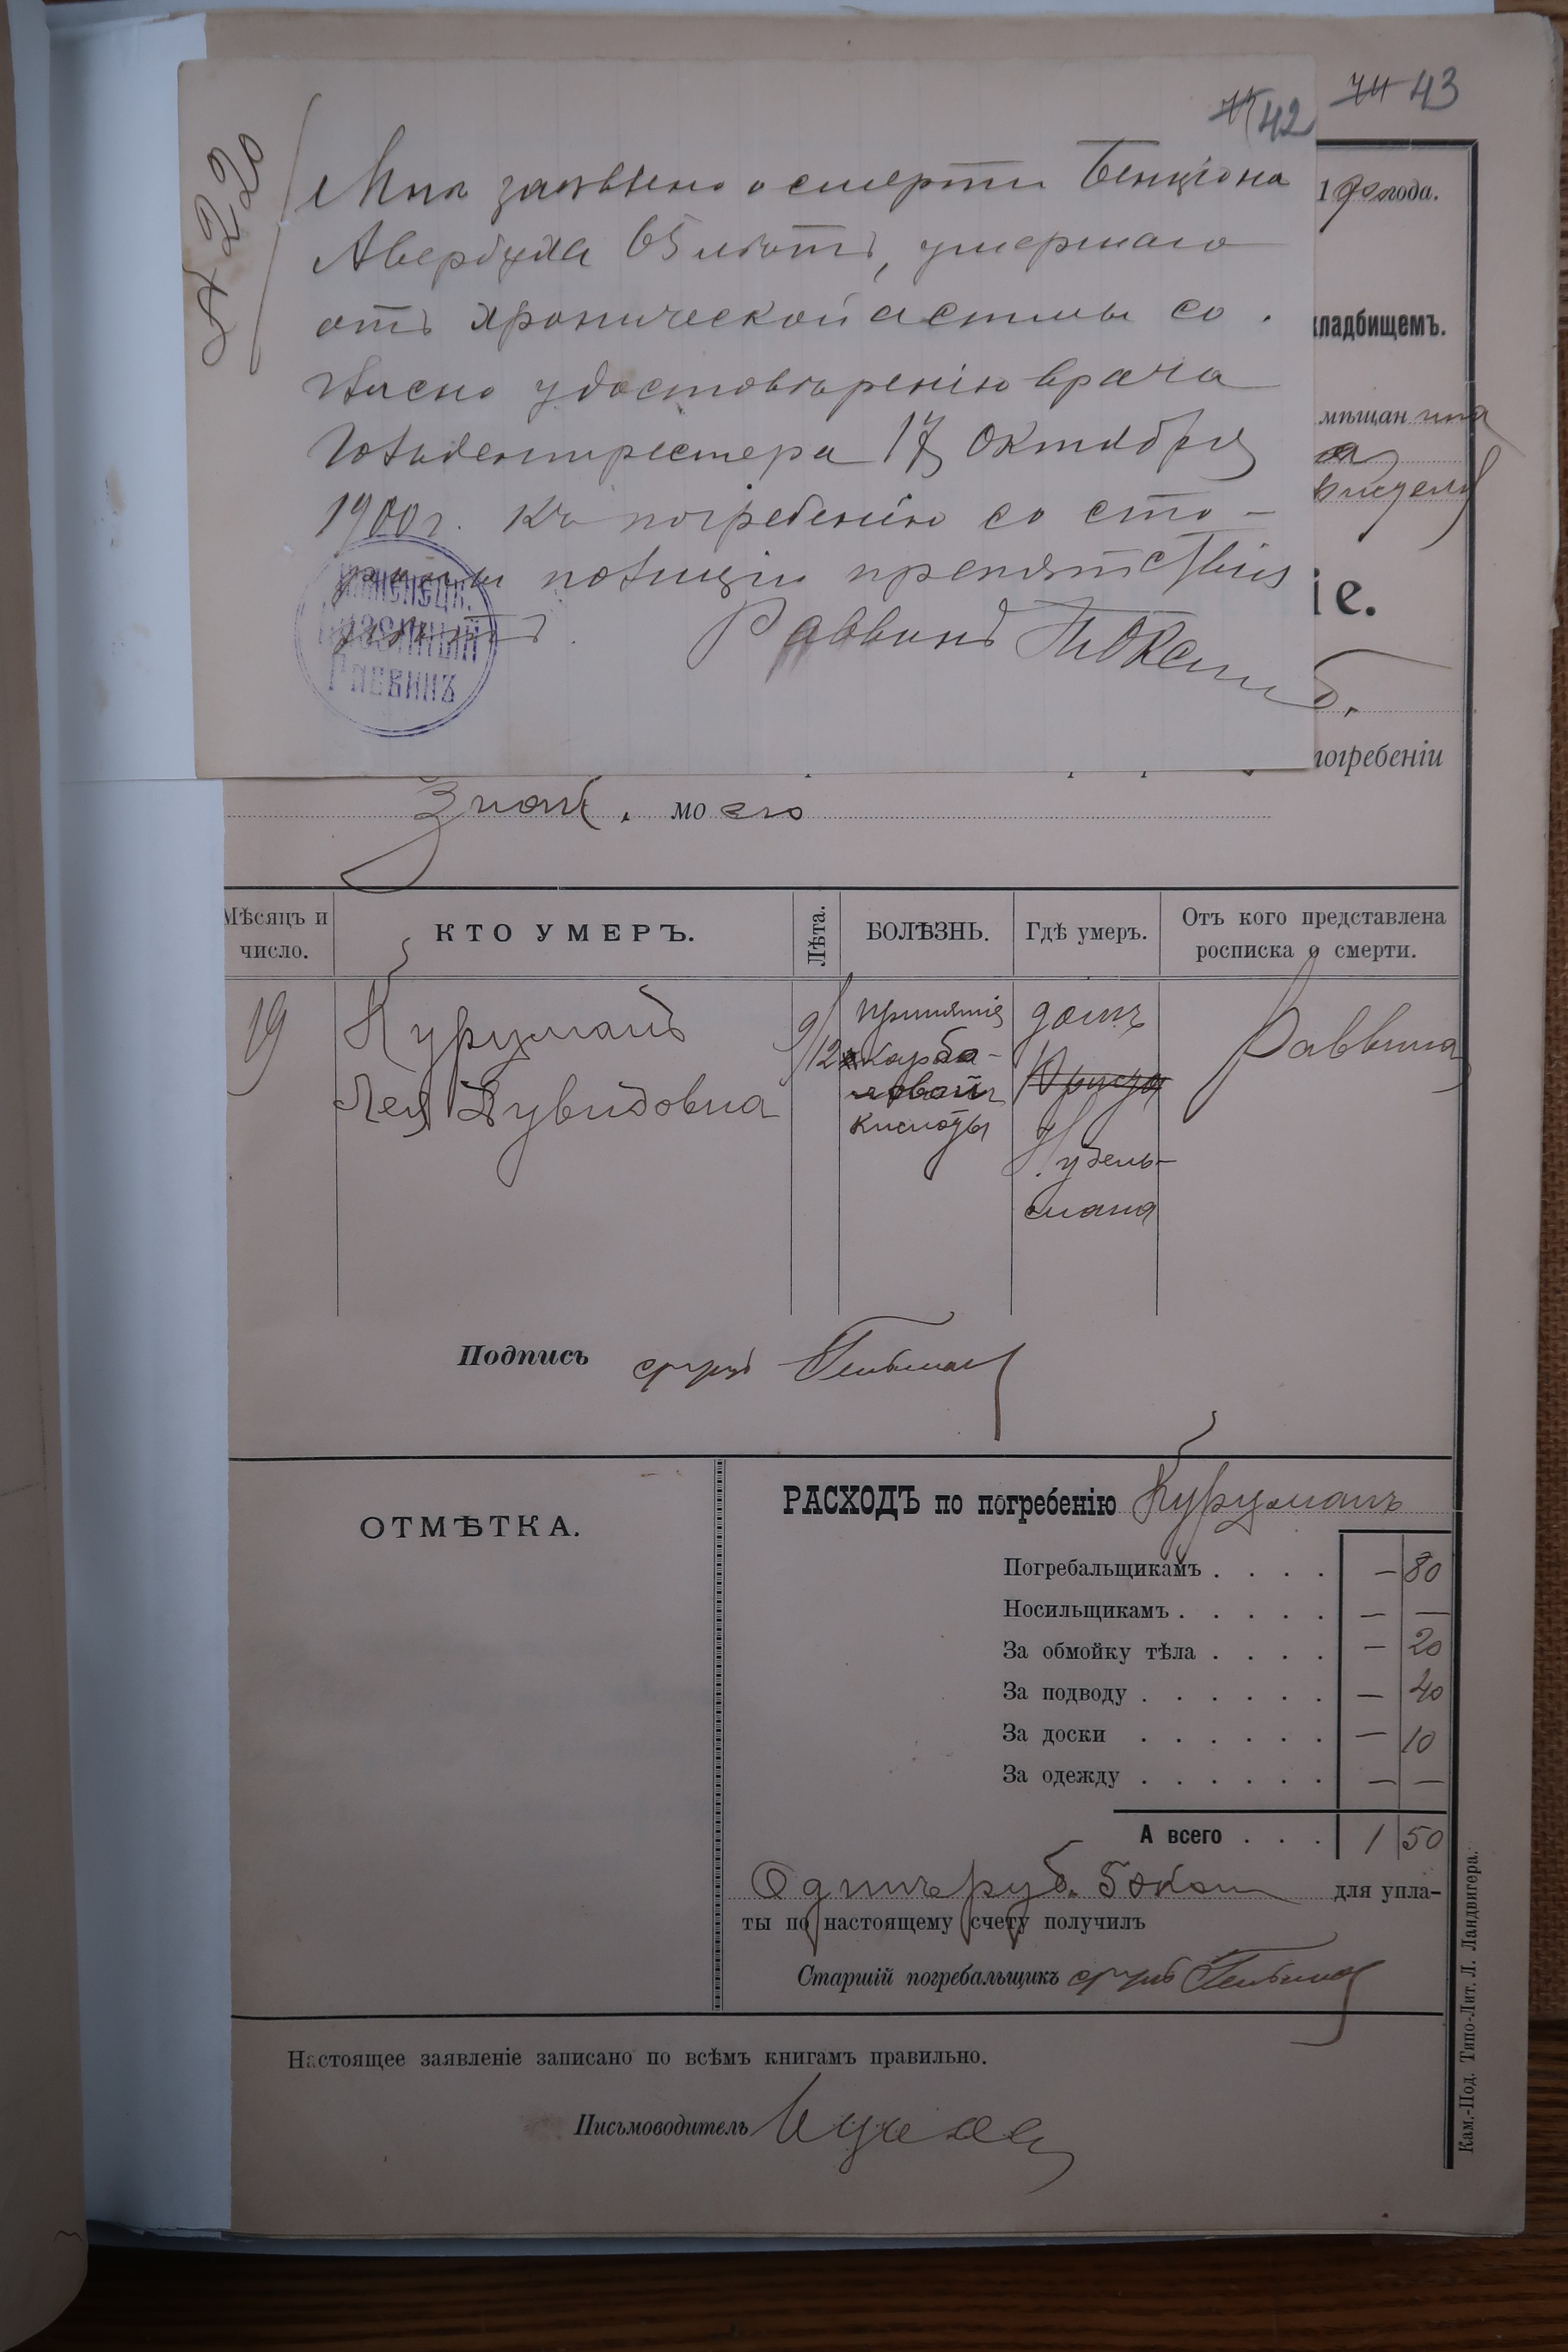 № 220
75 42
74 43
Мнѣ заявлено о смерти Бенціона
Авербуха 65 лѣтъ, умершаго
отъ хронической астмы со-
гласно удостовѣренію врача
Гольденштейстера 17 Октября
1900 г. Къ погребенію со сто-
роны полиціи препятствія
нѣтъ.
Раввинъ
КАМЕНЕЦК.
КАЗЕННЫЙ
РАВВИНЪ
1900 года.
кладбищемъ.
мѣщанина
іе.
погребеніи
Знак. моего
Мѣсяцъ и число.
КТО УМЕРЪ.
Лѣта.
БОЛѢЗНЬ.
Гдѣ умеръ.
Отъ кого представлена росписка о смерти.
19
Курцманъ
Лея Дувидовна
9/12
принятіе
карбо-
ловой
кислоты
домъ
Нудель-
мана
Раввина
Подпись
ОТМѢТКА.
РАСХОДЪ по погребенію Курцманъ
Погребальщикамъ . . . . — 80
Носильщикамъ . . . . . — —
За обмойку тѣла . . . . — 20
За подводу . . . . . . — 40
За доски . . . . . . — 10
За одежду . . . . . . — —
А всего . . . 1 50
Одинъ руб. 50 коп для упла-
ты по настоящему счету получилъ
Старшій погребальщикъ
Настоящее заявленіе записано по всѣмъ книгамъ правильно.
Письмоводитель
Кам.-Под. Типо-Лит. Л. Ландвигера.